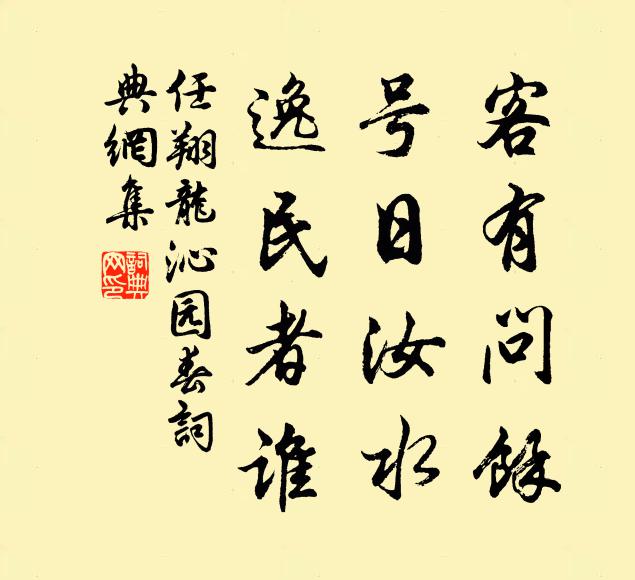 客有問餘
号日汝水
逸民者谁
任翔龍沁园春詞
典網集
詞典網印